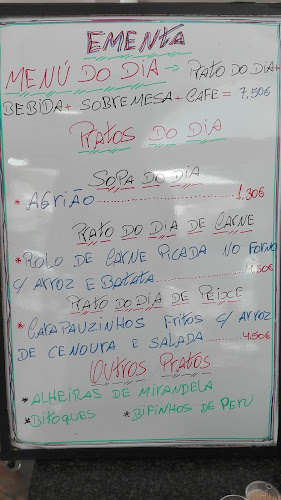 EMENTA
MENÚ DO DIA → PRATO DO DIA+
BEBIDA+ SOBREMESA + CAFE = 7,50€
PRATOS DO DIA
SOPA DO DIA
* AGRIÃO.......................... 1.30€
PRATO DO DIA DE CARNE
* ROLO DE CARNE PICADA NO FORNO
C/ ARROZ E BATATA.................... 4.50€
PRATO DO DIA DE PEIXE
* CARAPAUZINHOS FRITOS C/ ARROZ
DE CENOURA E SALADA........... 4.50€
OUTROS PRATOS
* ALHEIRAS DE MIRANDELA
* BITOQUES * BIFINHOS DE PERU